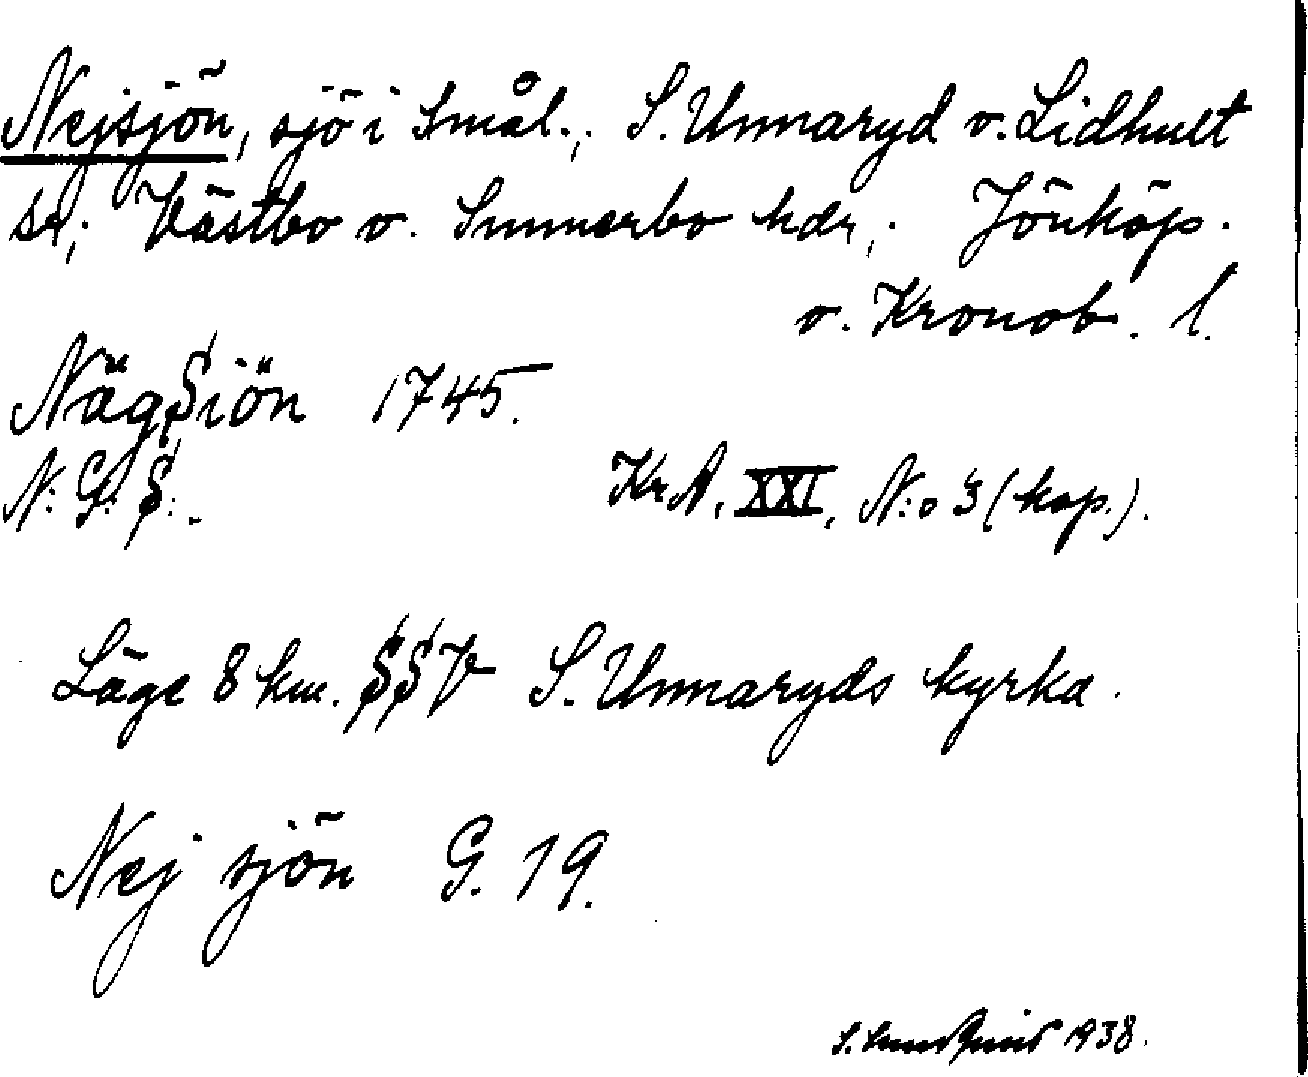 Nejsjön, sjö i Smål., S. Unnaryd o. Lidhult
sr; Västbo o. Sunnerbo hdr,. Jönköp.
o. Kronob. l.
NägSiön 1745.
N: G: S:.
Kr A. XXI, N:o 3 (kop.).
Läge 8 km. SSV S. Unnaryds kyrka.
Nej sjön G. 19.
S. 1938.